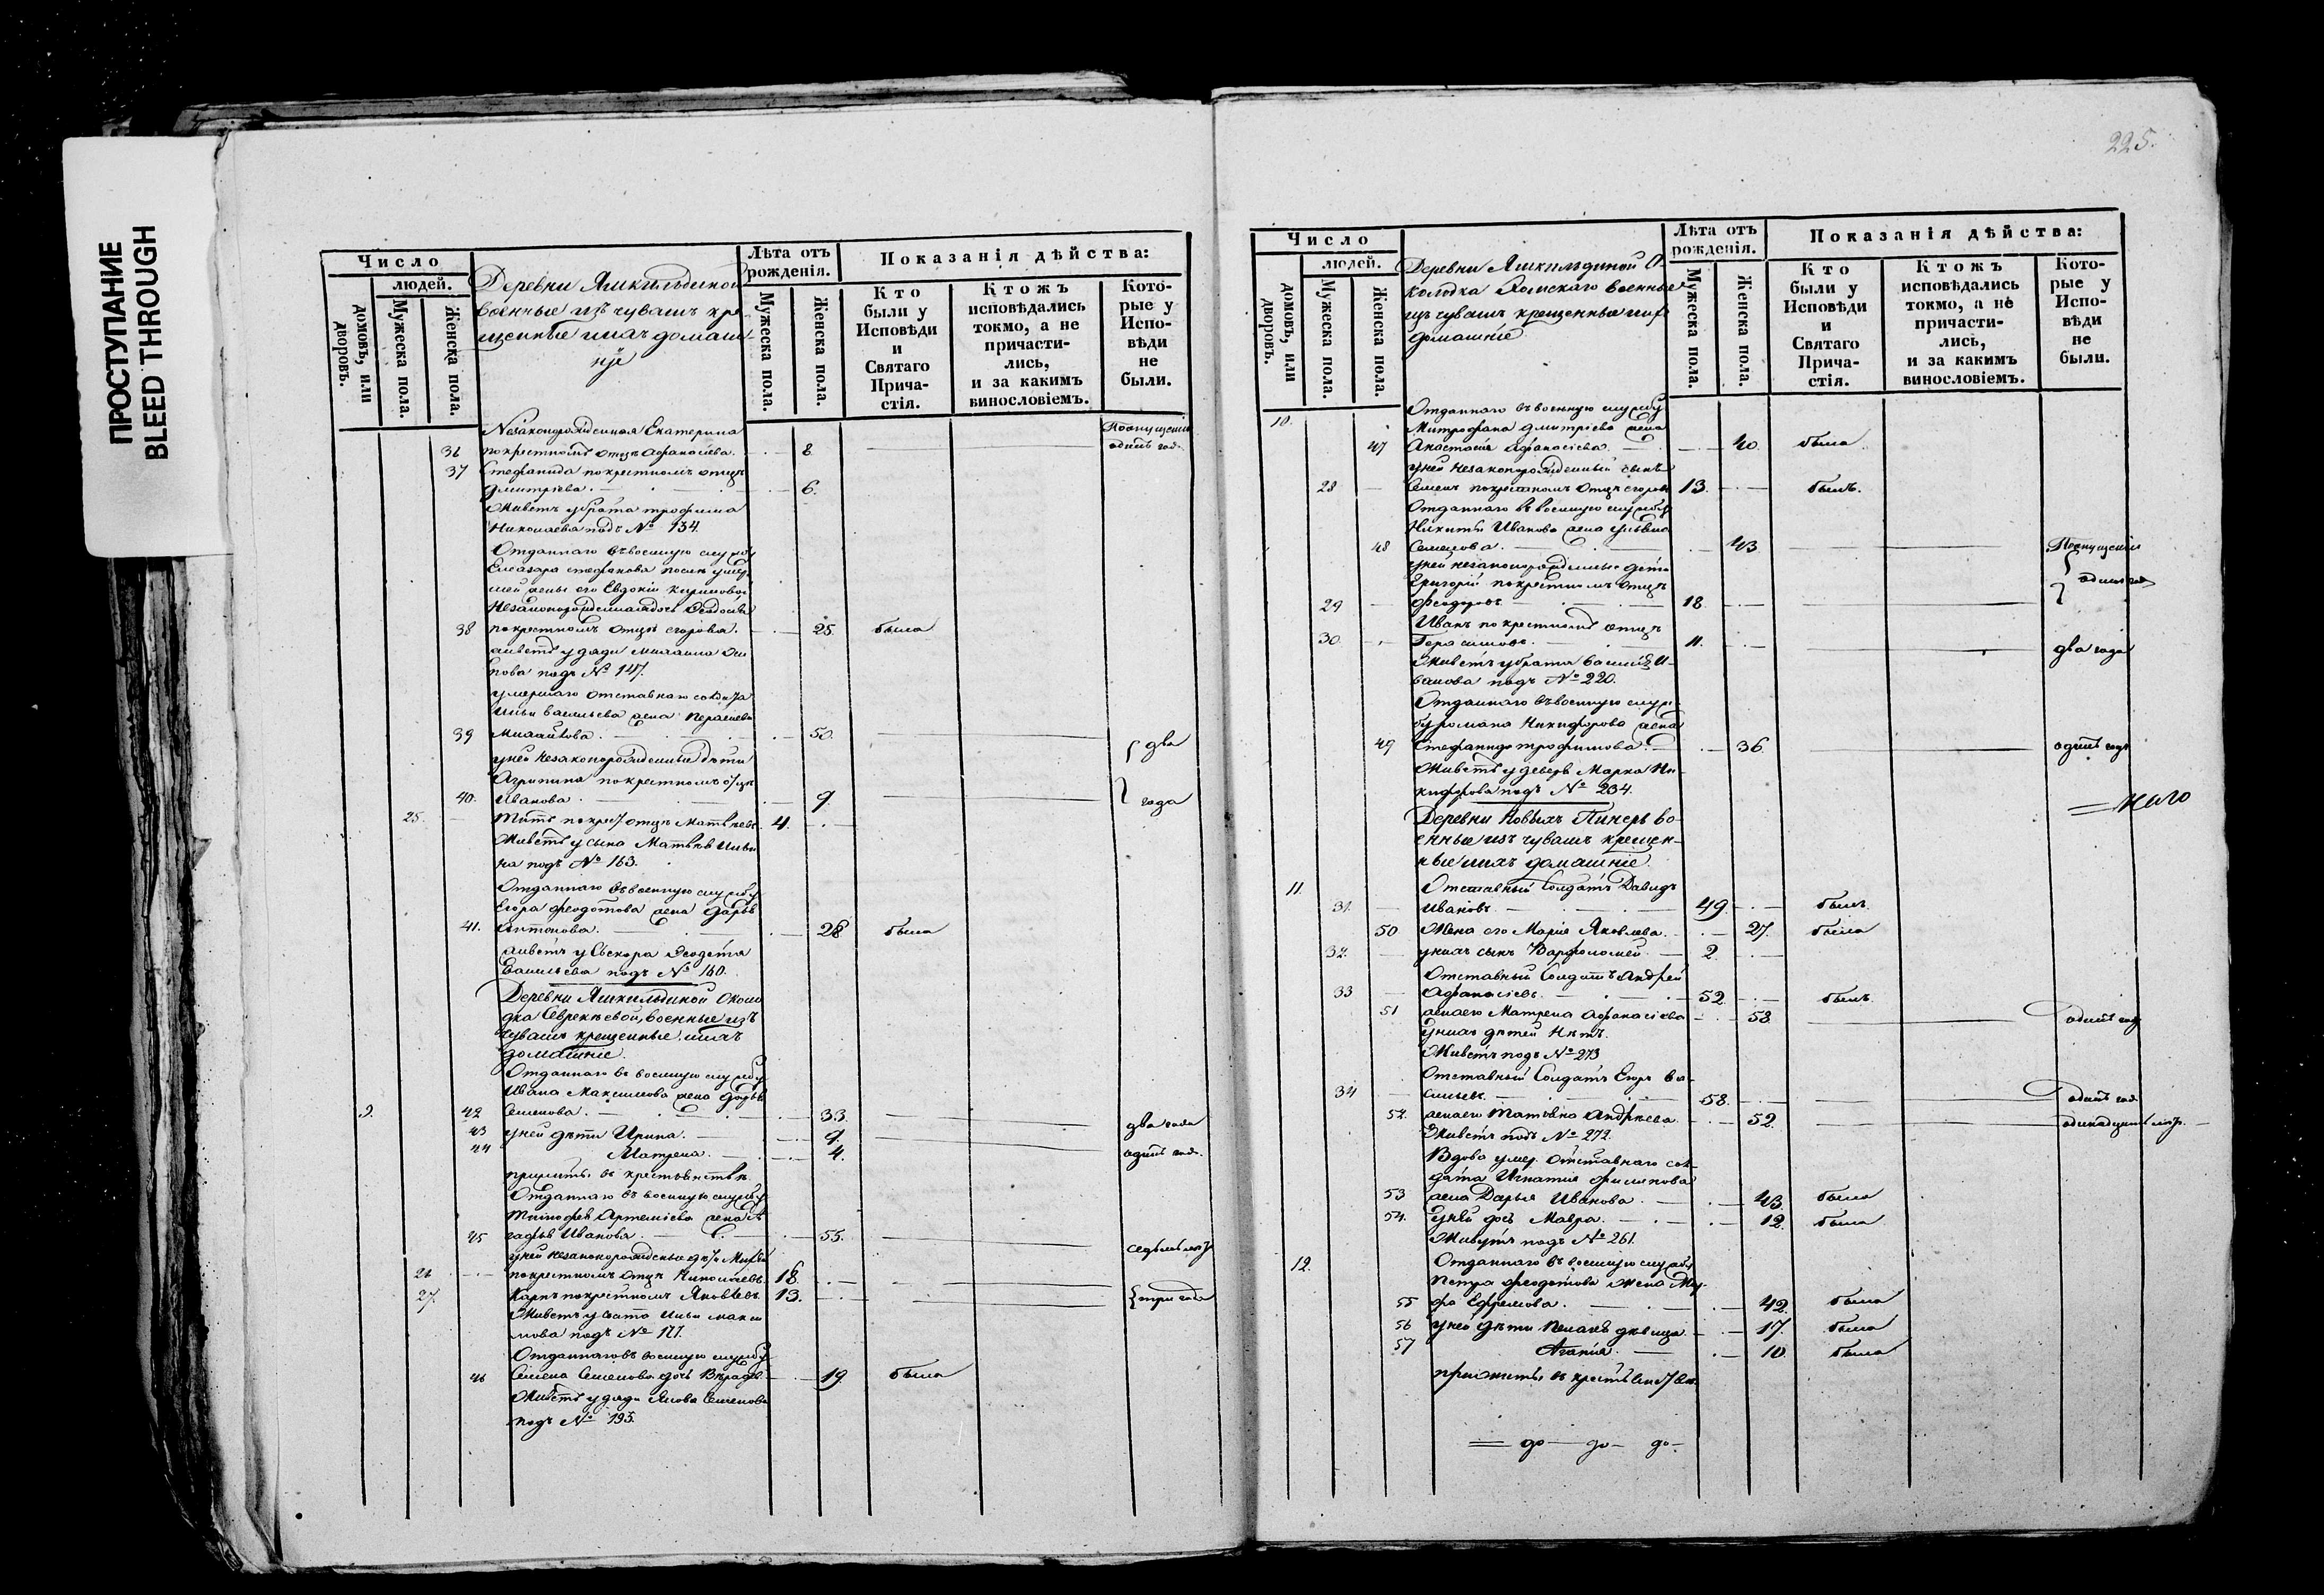 ПРОСТУПАНИЕ
BLEED THROUGH
Число
людей.
домовъ, или дворовъ.
Мужеска пола.
Женска пола.
Деревни Яшкильдиной
военные изъ чувашъ кре
щенные и ихъ домаш-
нiе
Лѣта отъ рожденія.
Мужеска пола.
Женска пола.
Показанія дѣйства:
Кто были у Исповѣди и Святаго Прича-стія.
Ктожъ исповѣдались токмо, а не причасти-лись, и за какимъ винословіемъ.
Кото-рые у Испо-вѣди не были.
Незаконорожденная Екатерина
36 по крестномъ отцѣ Афанасьева. 8 одинъ годъ
37 Стефанида по крестномъ отцѣ
Дмитріева. 6.
Живетъ у брата Трофима
Николаева подъ № 134.
Отданнаго въ военную службу
Елеазара Стефанова послѣ умер
шей жены его Евдокіи
незаконорожденная дочь
38 по крестномъ отцѣ Егорова. 25. была
живетъ у дяди
пова подъ № 147.
умершаго отставнаго солдата
Ильи Васильева жена
39 50. два
у ней незаконорожденные дѣти
Агрипина по крестномъ отцѣ
40. Иванова. 9 года
25. Титъ по крест отцѣ Матвѣевъ 4.
Живетъ у сына Матвѣя Ильи
на подъ № 163.
Отданнаго въ военную службу
Егора Феодотова жена Дарья
41. Антонова. 28 была
живетъ у свекора Феодота
Васильева подъ № 160.
Деревни Яшкильдиной Около
дка военные изъ
чувашъ крещенные и ихъ
домашніе.
Отданнаго въ военную службу
Ивана Максимова жена
9. 42 Семенова. 33. два года
43 у ней дѣти Ирина. 9.
44 Матрена. 4. одинъ годъ.
въ крестьянствѣ
Отданнаго въ военную службу
Тимофея Артемьева жена
45 Иванова. 55.
у ней незаконорожденные дѣти
26 по крестномъ отцѣ Николаевъ 18.
27. Карпъ по крестномъ Яковлевъ 13. три года
Живетъ у Ильи макси
мова подъ № 177.
Отданнаго въ военную службу
46 Семена Семенова дочь 19 была
Живетъ у дяди Якова Семенова
подъ № 195.
225.
Число
людей.
домовъ, или дворовъ.
Мужеска пола.
Женска пола.
Деревни Яшкильдиной О-
колодка военные
изъ чувашъ крещенные и ихъ
домашніе
Лѣта отъ рожденія.
Мужеска пола.
Женска пола.
Показанія дѣйства:
Кто были у Исповѣди и Святаго Прича-стія.
Ктожъ исповѣдались токмо, а не причасти-лись, и за какимъ винословіемъ.
Кото-рые у Испо-вѣди не были.
10. Отданнаго въ военную службу
Митрофана Дмитріева жена
47 Анастасія Афанасіева. 40. была
у ней незаконорожденный сынъ
28 Семенъ по крестномъ отцѣ Егоровъ 13. былъ.
Отданнаго въ военную службу
Никиты Иванова жена Ульяна
48 Семенова. 43
у ней незаконорожденные дѣти
Григорій по крестномъ отцѣ
29 Феодоровъ 18. одинъ годъ
Иванъ по крестномъ отцѣ
30. Герасимовъ. 11. два года
Живетъ у брата Василья И-
ванова подъ № 220.
Отданнаго въ военную служ
бу Романа Никифорова жена
49 Стефанида Трофимова. 36 одинъ годъ
Живетъ у деверя Марка Ни-
кифорова подъ № 234.
Деревни Новыхъ Пинеръ во-
енные изъ чувашъ крещен-
ные и ихъ домашніе.
11. Отставный Солдатъ Давидъ
31. Ивановъ 49. былъ.
50 Жена его Марія Яковлева. 27. была
32. у нихъ сынъ Варфоломей. 2.
Отставный Солдатъ Андрей
33 Афанасіевъ. 52. былъ.
51 жена его Матрена Афанасіева 58. одинъ годъ
у нихъ дѣтей нѣтъ.
Живетъ подъ № 273
Отставный Солдатъ Егоръ Ва-
34 сильевъ. 58. одинъ годъ
52. жена его Татьяна Андреева 52.
Живетъ подъ № 272.
Вдова умер. отставнаго сол-
дата Игнатія Филипова
53 жена Дарья Иванова. 43. была
54. у ней дочь Мавра. 12. была
Живутъ подъ № 261.
12. Отданнаго въ военную службу
Петра Феодотова жена Мар
55 фа Ефремова. 42. была
56 у ней дѣти дѣвица 17. была
57 Агапія. 10. была
въ крестьянствѣ.
до — до — до —